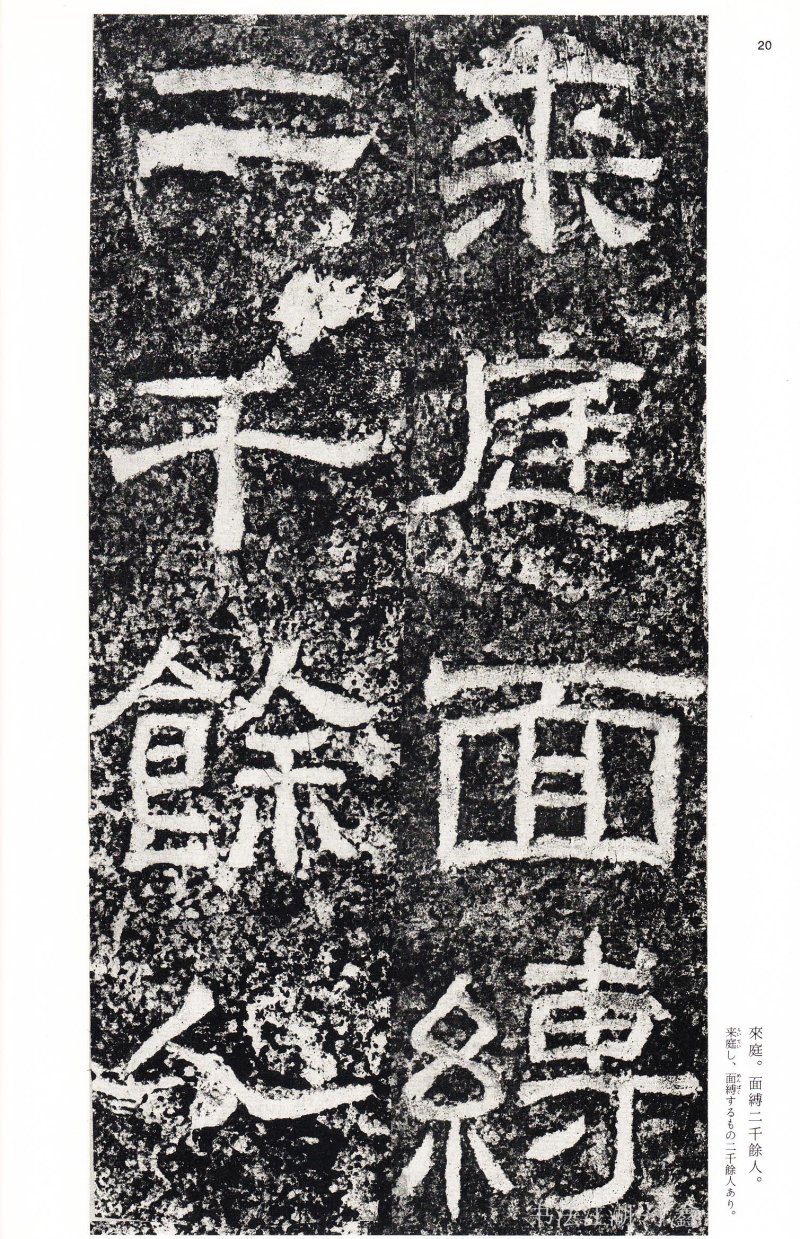 20
來庭面縛
二千餘人
來庭。面縛二千餘人。
来庭し、面縛するもの二千餘人あり。
らいてい
めんばく
书法江湖